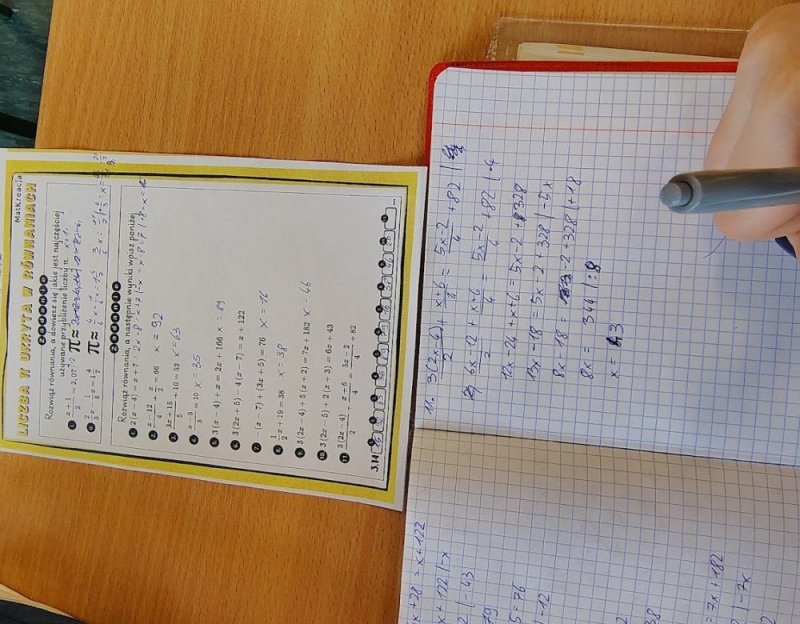 MatKreacja
LICZBA π UKRYTA W RÓWNANIACH
ZADANIE
Rozwiąż równania, a dowiesz się jakie jest najczęściej
używane przybliżenie liczby π.
π≈
π≈
ZADANIE
Rozwiąż równania, a następnie wyniki wpisz poniżej
1 2(x − 4) = x + 7
2 (x − 12)/4 + x = 66 x = 92
3 (3x + 15)/5 + 10 = 52 x = 63
4 (x − 5)/3 = 10 x = 35
5 3(x − 4) + x = 2x + 166 x = 89
6 3(2x + 5) − 4(x − 7) = x + 122
7 (x − 7) + (3x + 5) = 76 x = 16
8 1/2 x + 19 = 38 x = 38
9 3(2x − 4) + 5(x + 2) = 7x + 182 x = 66
10 3(2x − 5) + 2(x + 3) = 6x + 43
11 3(2x − 4)/2 + (x + 6)/4 = (5x − 2)/4 + 82
3,14
11. 3(2x-4)/2 + x+6/4 = 5x-2/4 + 82 |
6x-12/2 + x+6/4 = 5x-2/4 + 82 |·4
12x-24+x+6=5x-2+328
13x-18=5x-2+328 |-5x
8x-18= -2+328 |+18
8x= 344 |:8
x= 43
+28 = x+122
x+122 |-x
|-43
79
5=76
|-12
38
=7x+182
|-7x